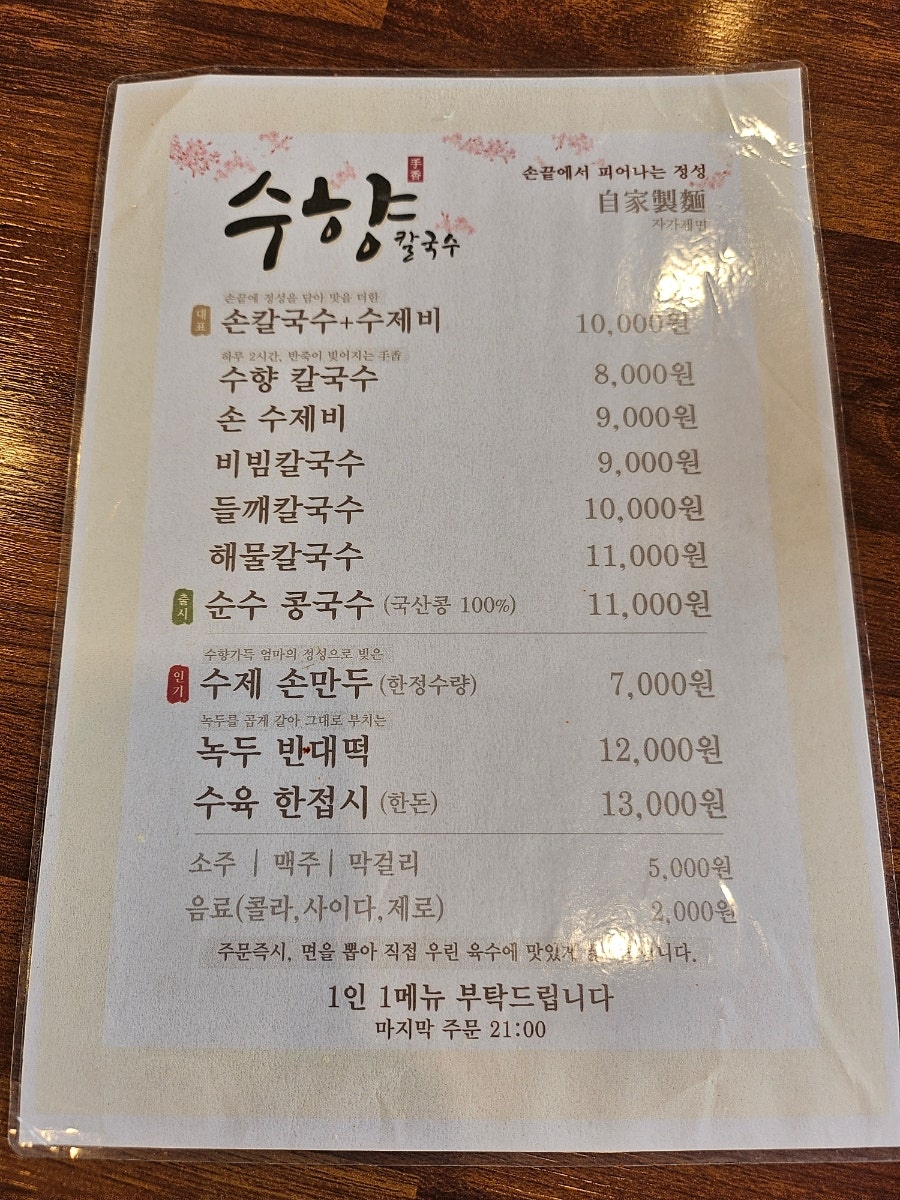 손끝에서 피어나는 정성
手香
수향
칼국수
自家製麵
자가제면
손끝에 정성을 담아 맛을 더한
대표 손칼국수+수제비 10,000원
하루 2시간, 반죽이 빚어지는 手香
수향 칼국수 8,000원
손 수제비 9,000원
비빔칼국수 9,000원
들깨칼국수 10,000원
해물칼국수 11,000원
출시 순수 콩국수 (국산콩 100%) 11,000원
수향가득 엄마의 정성으로 빚은
인기 수제 손만두 (한정수량) 7,000원
녹두를 곱게 갈아 그대로 부치는
녹두 반대떡 12,000원
수육 한접시 (한돈) 13,000원
소주 | 맥주 | 막걸리 5,000원
음료(콜라,사이다,제로) 2,000원
주문즉시, 면을 뽑아 직접 우린 육수에 맛있게
1인 1메뉴 부탁드립니다
마지막 주문 21:00